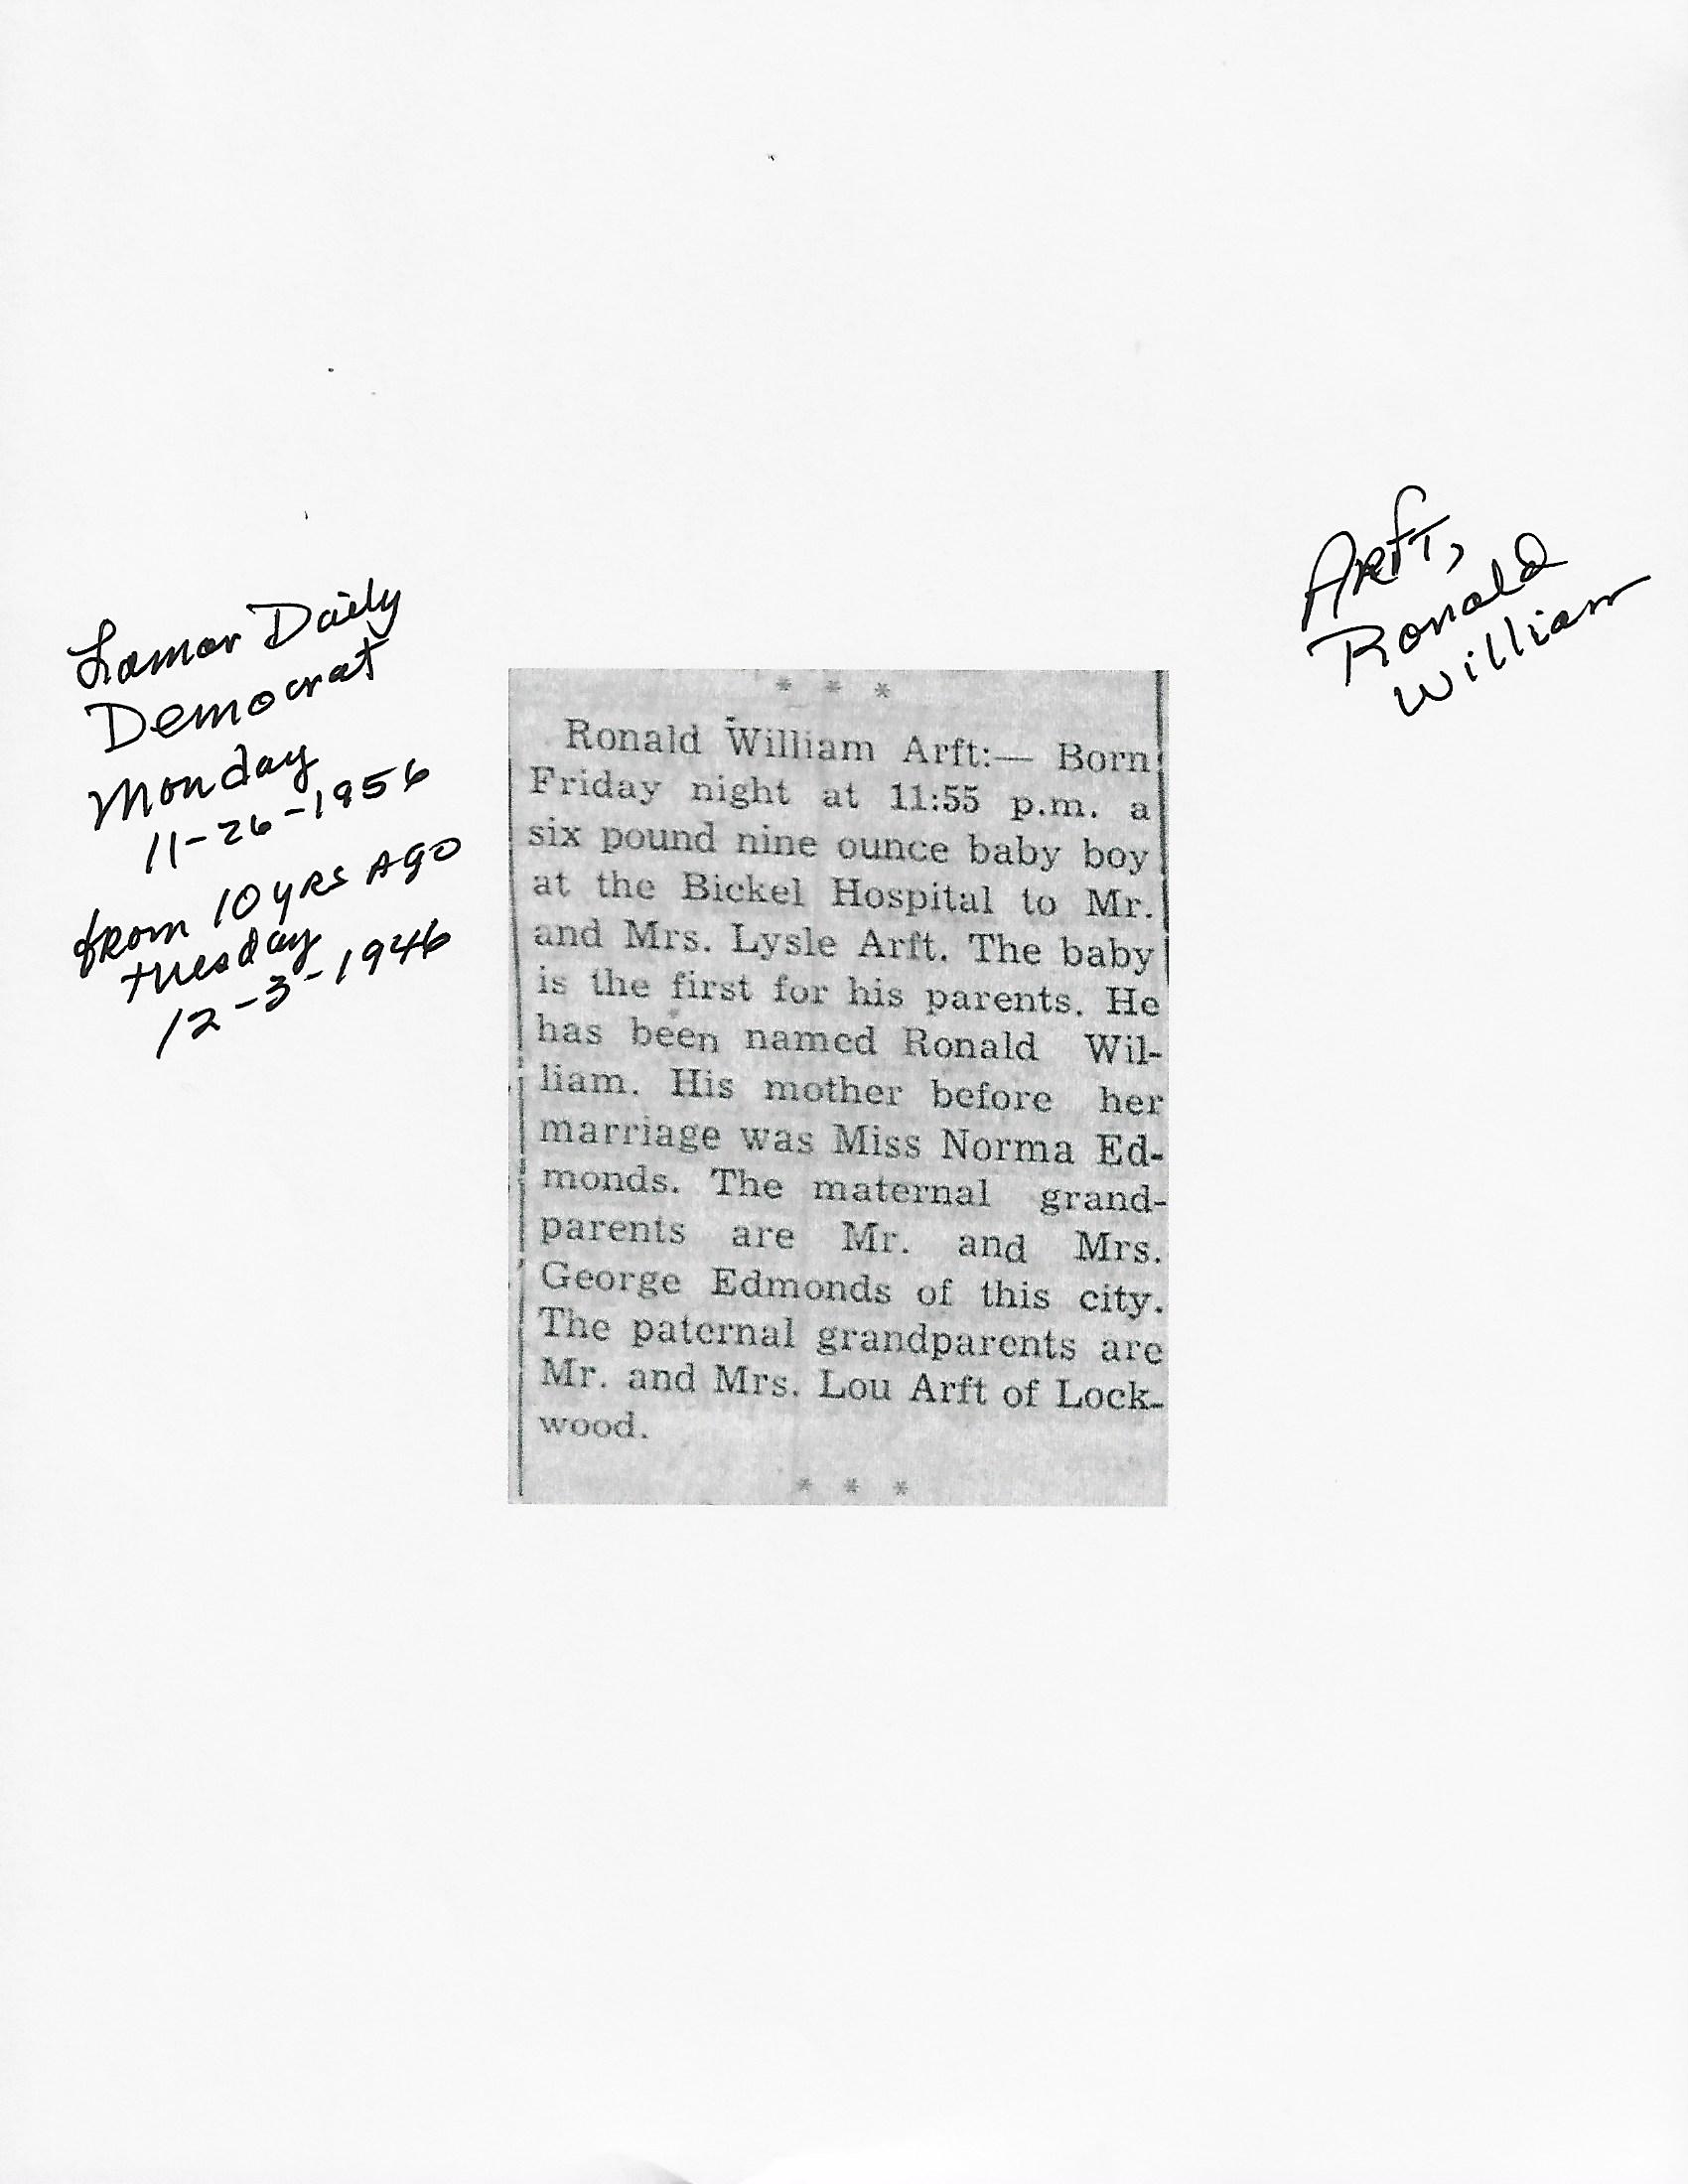 Lamar Daily
Democrat
Monday
11-26-1956
from 10 yrs Ago
Tuesday
12-3-1946
Arft,
Ronald
William
* * *
Ronald William Arft:— Born
Friday night at 11:55 p.m. a
six pound nine ounce baby boy
at the Bickel Hospital to Mr.
and Mrs. Lysle Arft. The baby
is the first for his parents. He
has been named Ronald Wil-
liam. His mother before her
marriage was Miss Norma Ed-
monds. The maternal grand-
parents are Mr. and Mrs.
George Edmonds of this city.
The paternal grandparents are
Mr. and Mrs. Lou Arft of Lock-
wood.
* * *